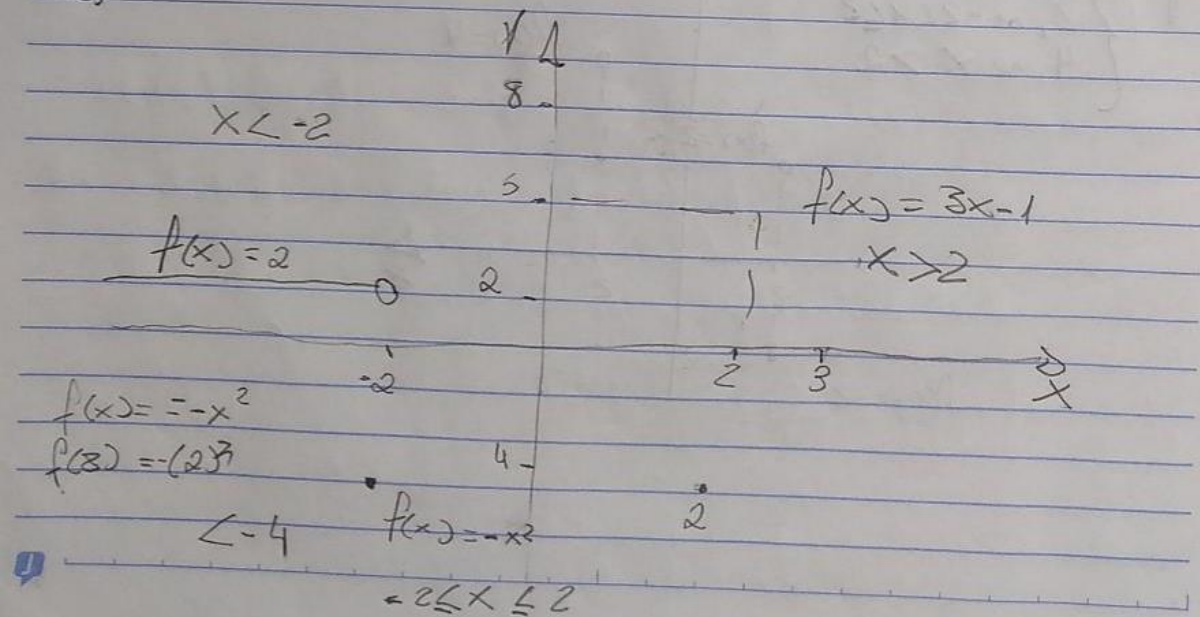 Y
8
x < -2
5
f(x) = 3x-1
f(x) = 2
x > 2
2
-2
2
3
x
f(x) = = -x²
f(3) = -(2)²
4
2
< -4
f(x) = -x²
-2 ≤ x ≤ 2